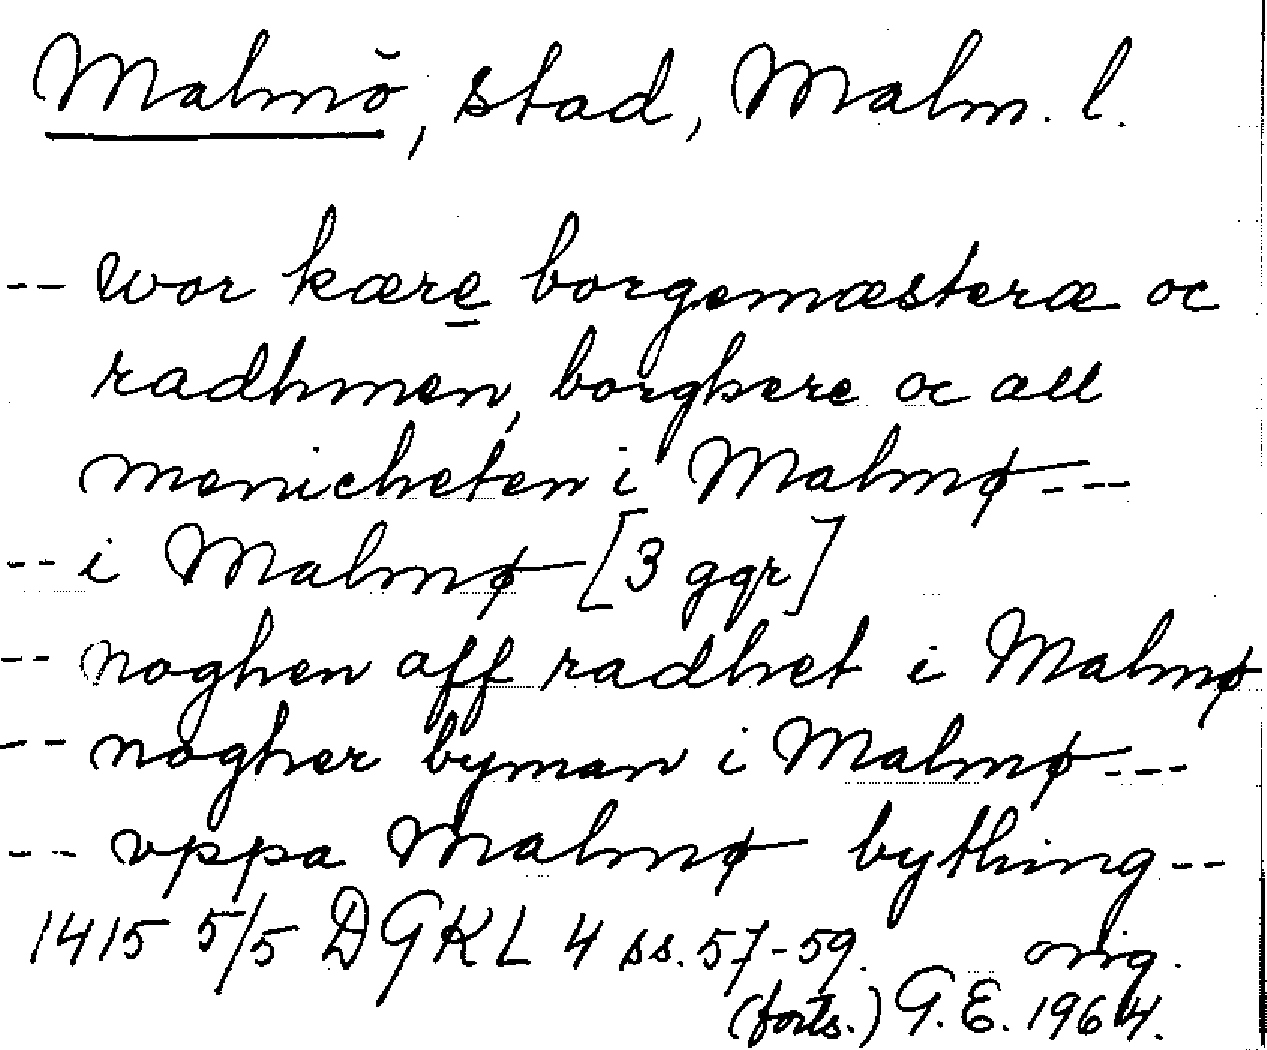 Malmö, stad, Malm. l.
-- wor kære borgemæsteræ oc
radhmen, borghere oc all
menicheten i Malmø ---
-- i Malmø [3 ggr]
-- noghen aff radhet i Malmø
-- nogher byman i Malmø ---
-- vppa Malmø bything --
1415 5/5 DGKL 4 ss. 57-59. orig.
(forts.) G. E. 1964.